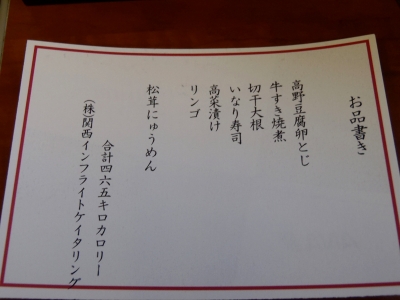 お品書き
高野豆腐卵とじ
牛すき焼煮
切干大根
いなり寿司
高菜漬け
リンゴ
松茸にゅうめん
合計四六五キロカロリー
(株)関西インフライトケイタリング